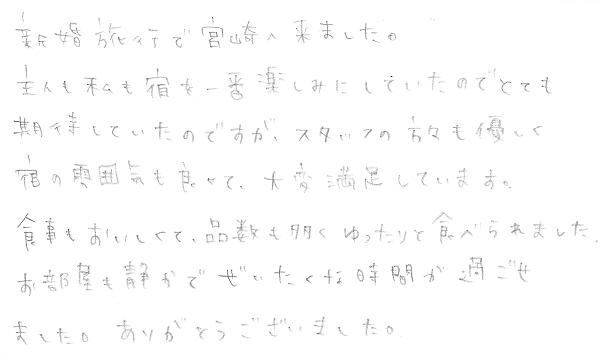 新婚旅行で宮崎へ来ました。
主人も私も宿を一番楽しみにしていたのでとても
期待していたのですが、スタッフの方々も優しく
宿の雰囲気も良くて、大変満足しています。
食事もおいしくて、品数も多くゆったりと食べられました。
お部屋も静かでぜいたくな時間が過ごせ
ました。ありがとうございました。